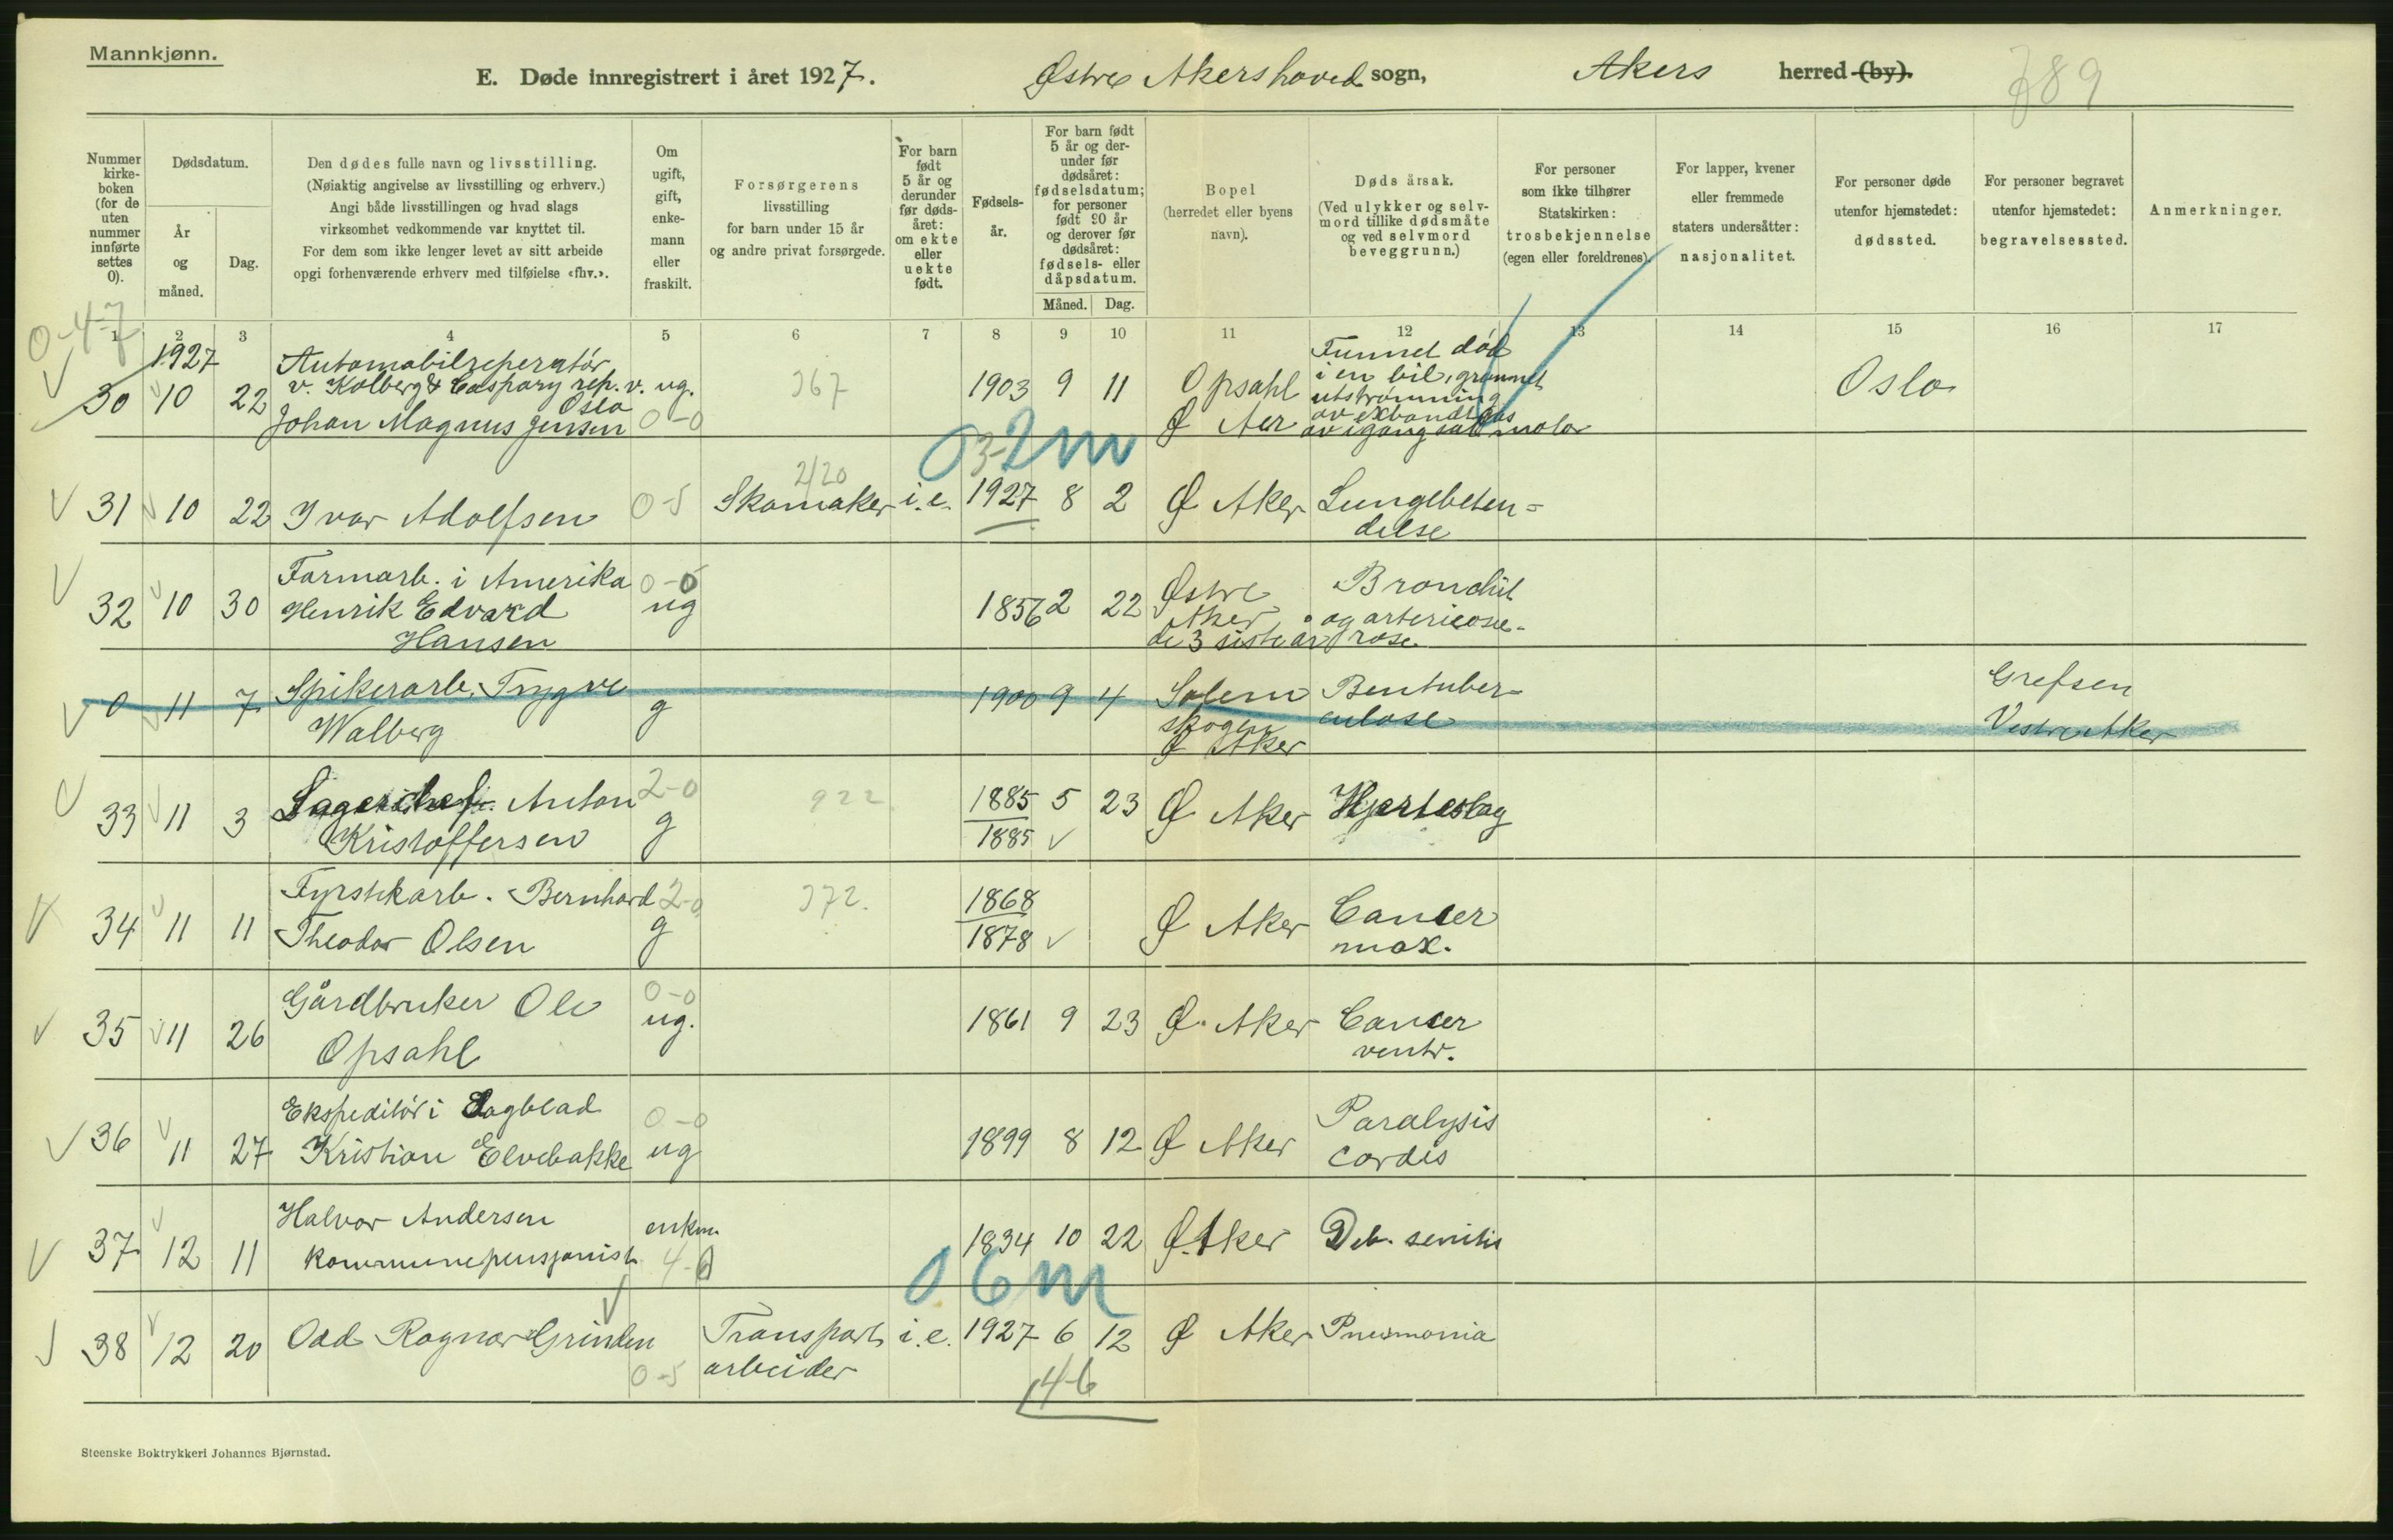 Mannkjønn.
E. Døde innregistrert i året 1927. Østre Akers hoved sogn, Akers herred (by). 789
Nummer kirke-boken (for de uten nummer innførte settes 0).
Dødsdatum.
År og måned.
Dag.
Den dødes fulle navn og livsstilling.
(Nøiaktig angivelse av livsstilling og erhverv.)
Angi både livsstillingen og hvad slags
virksomhet vedkommende var knyttet til.
For dem som ikke lenger levet av sitt arbeide
opgi forhenværende erhverv med tilføielse «fhv.».
Om ugift, gift, enke-mann eller fraskilt.
Forsørgerens
livsstilling
for barn under 15 år
og andre privat forsørgede.
For barn født 5 år og derunder før døds-året: om ekte eller uekte født.
Fødsels-år.
For barn født 5 år og der-under før dødsåret: fødselsdatum; for personer født 90 år og derover før dødsåret: fødsels- eller dåpsdatum.
Måned. Dag.
Bopel
(herredet eller byens
navn).
Døds årsak.
(Ved ulykker og selv-
mord tillike dødsmåte
og ved selvmord
beveggrunn.)
For personer
som ikke tilhører
Statskirken:
trosbekjennelse
(egen eller foreldrenes).
For lapper, kvener
eller fremmede
staters undersåtter:
nasjonalitet.
For personer døde
utenfor hjemstedet:
dødssted.
For personer begravet
utenfor hjemstedet:
begravelsessted.
Anmerkninger.
0-4-7
1 2 3 4 5 6 7 8 9 10 11 12 13 14 15 16 17
1927
30 10 22 Automobilreperatör
v. Kolberg & Caspary rep. v. Oslo
Johan Magnus Jensen ug. 0-0 367 1903 9 11 Opsahl
Ø Aer
Funnet död
i en bil, grunnet
utströmning
av exhandtgas
av igangsatt motor
Oslo
0 3-2 m
31 10 22 Ivar Adolfsen 0-5 2/20 Skomaker i.e. 1927 8 2 Ø Aker Lungebeten=
delse
32 10 30 Farmarb. i Amerika
Henrik Edvard
Hansen 0-0 ug 1856 2 22 Østre
Aker
de 3 siste år
Bronchit
og artericosle-
rose
0 11 7 Spikerarb. Trygve
Walberg g 1900 9 4 Solem
skogen
Ø Aker
Bentuber=
culose
Grefsen
Vestre Aker
33 11 3 Lagerchef. Anton
Kristoffersen 2-0 g 922 1885 5 23 Ø Aker Hjerteslag
1885
34 11 11 Fyrstikarb. Bernhard
Theodor Olsen 2-0 g 372. 1868
1878 Ø Aker Cancer
max.
35 11 26 Gårdbruker Ole
Opsahl 0-0 ug. 1861 9 23 Ø. Aker Cancer
ventr.
36 11 27 Ekspeditör i Dagblad
Kristian Elvebakke 0-0 ug 1899 8 12 Ø Aker Paralysis
cordis
37 12 11 Halvor Andersen
Kommunepensjonist enkm. 4-0 1834 10 22 Ø. Aker Deb. senilis
0 6 m
38 12 20 Odd Ragnar Grinden 0-5 Transport
arbeider i.e. 1927 6 12 Ø Aker Pneumonia
14-6
Steenske Boktrykkeri Johannes Bjørnstad.